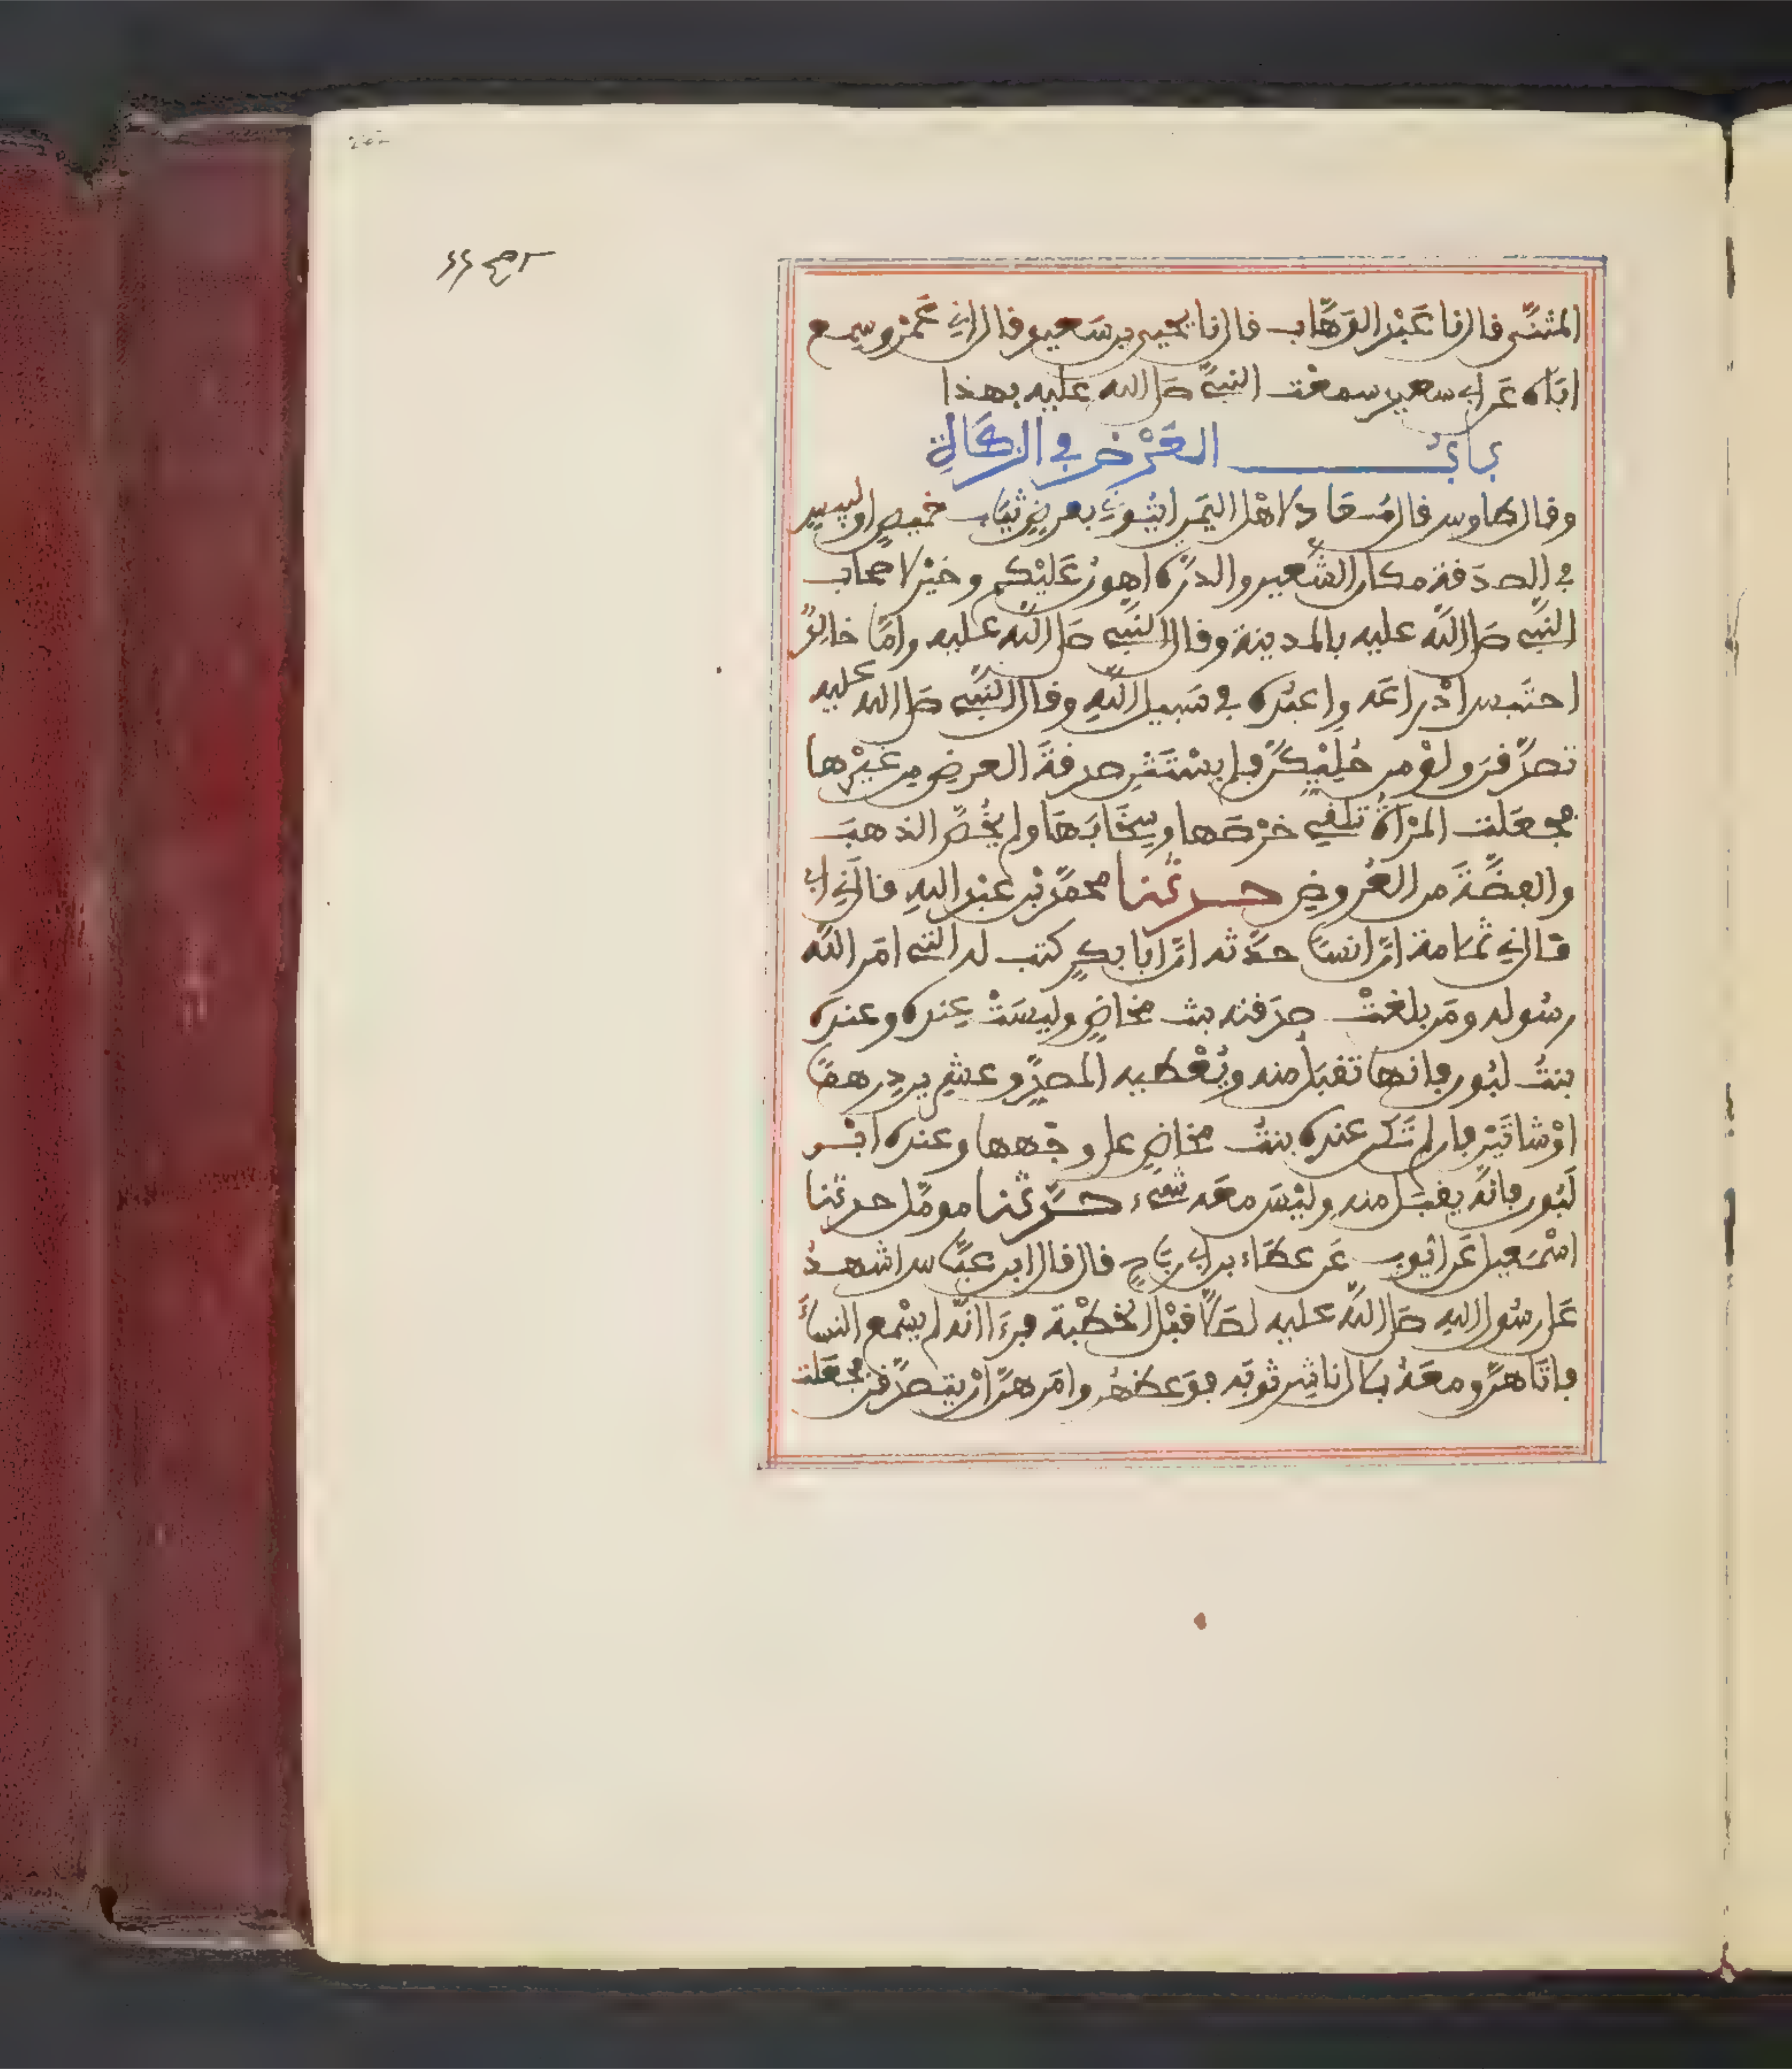 المثنى قال نا عبد الوهاب قال نا يحيى بن سعيد قال اني عمرو سمع
اباه عن ابي سعيد سمعت النبي صلى الله عليه بهذا
باب العرض في الزكاة
وقال طاوس قال معاذ لاهل اليمن ايتوني بعرض ثياب خميص او لبيس
في الصدقة مكان الشعير والذرة اهون عليكم وخير لاصحاب
النبي صلى الله عليه بالمدينة وقال النبي صلى الله عليه واما خالد
احتبس ادراعه واعبده في سبيل الله وقال النبي صلى الله عليه
تصدقن ولو من حليكن فلم يستثن صدقة العرض من غيرها
فجعلت المراة تلقي خرصها وسخابها ولم يخص الذهب
والفضة من العروض حدثنا محمد بن عبد الله قال اني ابي
قال ني ثمامة ان انسا حدثه ان ابا بكر كتب له التي امر الله
رسوله ومن بلغت صدقته بنت مخاض وليست عنده وعنده
بنت لبون فانها تقبل منه ويعطيه المصدق عشرين درهما
او شاتين فان لم تكن عنده بنت مخاض على وجهها وعنده ابن
لبون فانه يقبل منه وليس معه شيء حدثنا مومل حدثنا
اسمعيل عن ايوب عن عطاء بن ابي رباح قال قال ابن عباس اشهد
على رسول الله صلى الله عليه لصلى قبل الخطبة فرءا انه لم يسمع النساء
فاتاهن ومعه بلال ناشر ثوبه فوعظهن وامرهن ان يتصدقن فجعلت